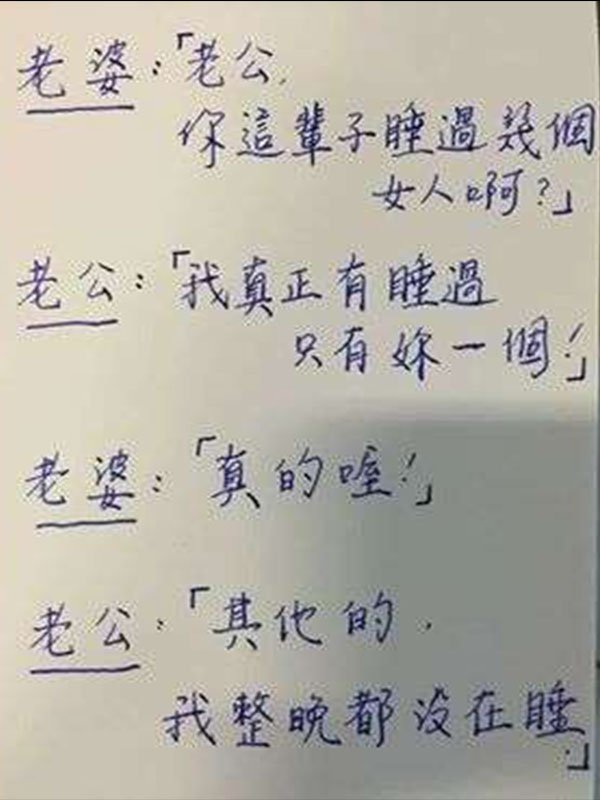 老婆：「老公，
你這輩子睡過幾個
女人啊？」
老公：「我真正有睡過
只有妳一個！」
老婆：「真的哇！」
老公：「其他的，
我整晚都沒在睡.」